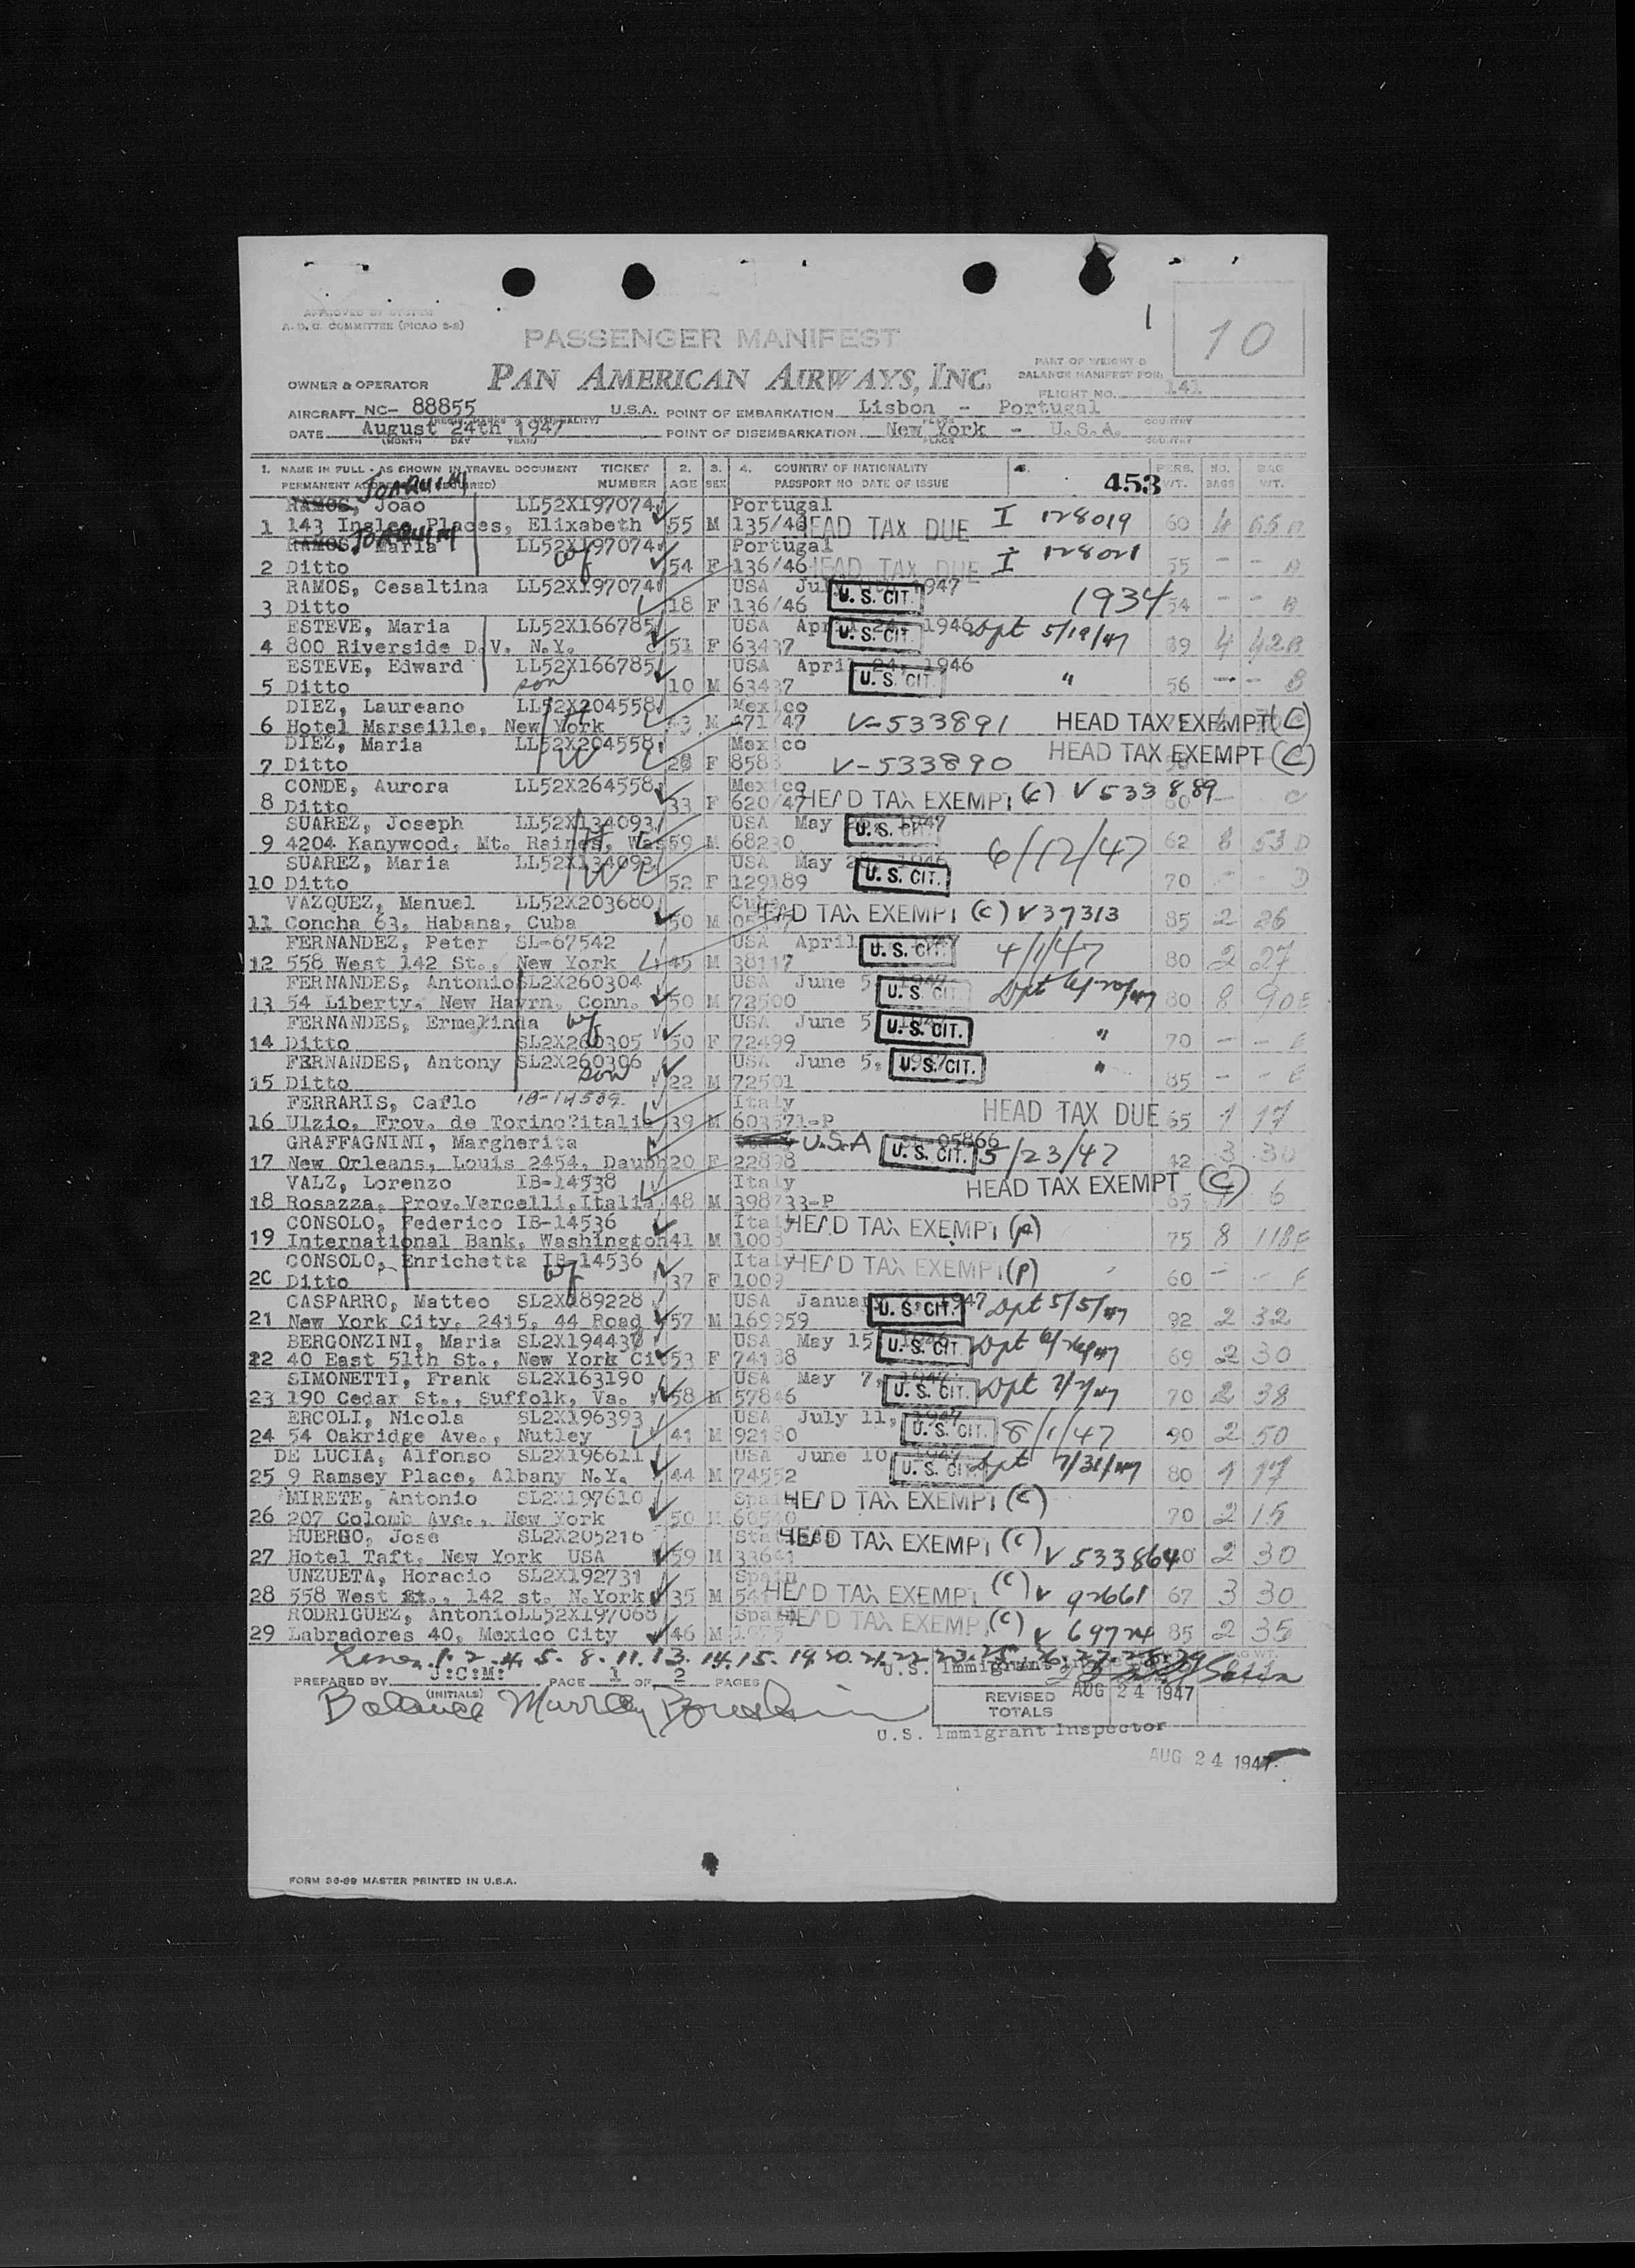 APPROVED BY SYSTEM
A.D.C. COMMITTEE (PICAO 2-2)
PASSENGER MANIFEST
1
10
PAN AMERICAN AIRWAYS, INC.
PART OF WEIGHT &
BALANCE MANIFEST FOR:
OWNER & OPERATOR
FLIGHT NO. 141
AIRCRAFT NC- 88855 U.S.A. POINT OF EMBARKATION Lisbon - Portugal
DATE August 24th 1947 POINT OF DISEMBARKATION New York - U.S.A.
(MONTH DAY YEAR) PLACE COUNTRY
1. NAME IN FULL - AS SHOWN IN TRAVEL DOCUMENT TICKET 2. 3. 4. COUNTRY OF NATIONALITY PERS. NO. BAG
PERMANENT NUMBER AGE SEX PASSPORT NO DATE OF ISSUE 453 WT. BAGS WT.
JOAQUIM
RAMOS, Joao LL52X197074 Portugal
1 143 Inslee Places, Elixabeth 55 M 135/46 HEAD TAX DUE I 128019 60 4
JOAQUIM
RAMOS, Maria LL52X197074 Portugal
2 Ditto wf 54 F 136/46 HEAD TAX DUE I 128021 55 - -
RAMOS, Cesaltina LL52X197074 USA 1947
3 Ditto 18 F 136/46 U. S. CIT. 1934 54 - -
ESTEVE, Maria LL52X166785 USA April 24, 1946
4 800 Riverside D.V. N.Y. 51 F 63437 U. S. CIT. Dpt 5/19/47 4 42B
ESTEVE, Edward LL52X166785 USA April 24, 1946
5 Ditto son 10 M 63437 U. S. CIT. " 56 - - B
DIEZ, Laureano LL52X204558 Mexico
6 Hotel Marseille, New York H M 471/47 V-533891 HEAD TAX EXEMPT (C)
DIEZ, Maria LL52X204558 Mexico
7 Ditto W 28 F 8583 V-533890 HEAD TAX EXEMPT (C)
CONDE, Aurora LL52X264558 Mexico
8 Ditto 33 F 620/47 HEAD TAX EXEMPT (C) V 533889 60 - C
SUAREZ, Joseph LL52X134093 USA May 1947
9 4204 Kanywood, Mt. Raines, Was 59 M 68230 U. S. CIT. 6/12/47 62 8 53 D
SUAREZ, Maria LL52X134093 USA May 1946
10 Ditto W 52 F 129189 U. S. CIT. 70 - - D
VAZQUEZ, Manuel LL52X203680 Cuba
11 Concha 63, Habana, Cuba 50 M HEAD TAX EXEMPT (C) V 37313 85 2 26
FERNANDEZ, Peter SL-67542 USA April
12 558 West 142 St., New York 45 M 38117 U. S. CIT. 4/1/47 80 2 27
FERNANDES, Antonio SL2X260304 USA June 5, 1947
13 54 Liberty, New Havrn, Conn. 50 M 72500 U. S. CIT. Dpt 6/20/47 80 8 90 E
FERNANDES, Ermelinda wf USA June 5
14 Ditto SL2X260305 50 F 72499 U. S. CIT. " 70 - - E
FERNANDES, Antony SL2X260306 USA June 5,
15 Ditto son 22 M 72501 U. S. CIT. " 85 - - E
FERRARIS, Carlo IB-14539 Italy
16 Ulzio, Prov. de Torino?italia 39 M 603571-P HEAD TAX DUE 65 1 17
GRAFFAGNINI, Margherita U.S.A 05866
17 New Orleans, Louis 2454, Dauph 20 F 22898 U. S. CIT. 5/23/47 42 3 30
VALZ, Lorenzo IB-14538 Italy
18 Rosazza, Prov.Vercelli,Italia 48 M 398733-P HEAD TAX EXEMPT (C) 65 6
CONSOLO, Federico IB-14536 Italy
19 International Bank, Washington 41 M 1008 HEAD TAX EXEMPT (P) 75 8 118F
CONSOLO, Enrichetta IB-14536 Italy
20 Ditto wf 37 F 1009 HEAD TAX EXEMPT (P) 60 - - F
CASPARRO, Matteo SL2X189228 USA January 1947
21 New York City, 2415, 44 Road 57 M 169959 U. S. CIT. Dpt 5/5/47 92 2 32
BERGONZINI, Maria SL2X194430 USA May 15
22 40 East 51th St., New York Cit 53 F 74188 U. S. CIT. Dpt 6/26/47 69 2 30
SIMONETTI, Frank SL2X163190 USA May 7, 1947
23 190 Cedar St., Suffolk, Va. 58 M 57846 U. S. CIT. Dpt 7/7/47 70 2 38
ERCOLI, Nicola SL2X196393 USA July 11, 1947
24 54 Oakridge Ave., Nutley 41 M 92180 U. S. CIT. 8/1/47 90 2 50
DE LUCIA, Alfonso SL2X196611 USA June 10 1947
25 9 Ramsey Place, Albany N.Y. 44 M 74552 U. S. CIT. Dpt 7/31/47 80 1 17
MIRETE, Antonio SL2X197610 Spain
26 207 Colomb Ave., New York 50 M 60540 HEAD TAX EXEMPT (C) 70 2 15
HUERGO, Jose SL2X205216
27 Hotel Taft, New York USA 59 M 33641 HEAD TAX EXEMPT (C) V 533864 2 30
UNZUETA, Horacio SL2X192731 Spain
28 558 West St., 142 st. N.York 35 M HEAD TAX EXEMPT (C) V 92661 67 3 30
RODRIGUEZ, Antonio LL52X197068 Spain
29 Labradores 40, Mexico City 46 M HEAD TAX EXEMPT (C) V 69724 85 2 35
Lines 1. 2. 4. 5. 8. 11. 13. 14. 15. 19. 20. 21. 22. 23. 25. 26. 27. 28. 29
U.S. Immigrant
PREPARED BY J:C:M: PAGE 1 OF 2 PAGES
(INITIALS)
Balance Murray
REVISED TOTALS AUG 24 1947
U.S. Immigrant Inspector
AUG 24 1947
FORM 36-99 MASTER PRINTED IN U.S.A.